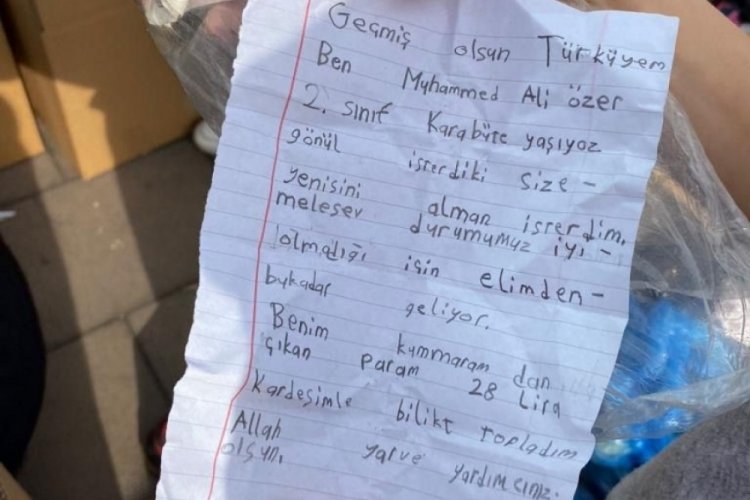 Geçmiş olsun Türküyem
Ben Muhammed Ali özer
2. sınıf Karabüte yaşıyoz
gönül isterdiki size -
yenisini alman isterdim.
melesev durumumuz iyi -
olmadığı için elimden -
bukadar geliyor.
Benim kummaram dan
çıkan param 28 Lira
Kardeşimle bilikt topladım
Allah yarve yardımcınız.
olsun.